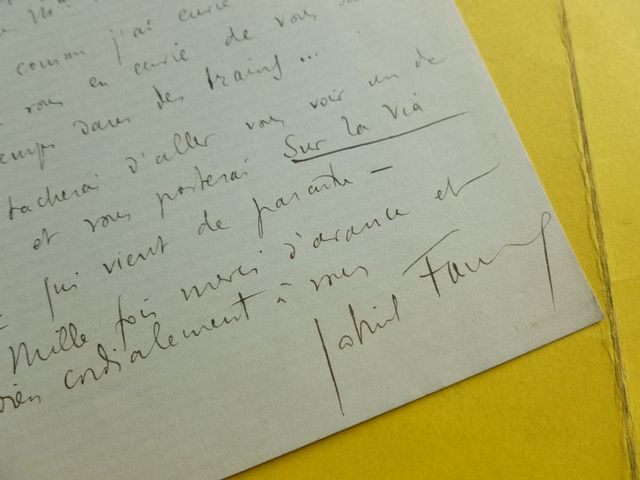 comm j'ai envie
vous en envie de vous
temps dans des trains...
tacherai d'aller vous voir un de
et vous porterai Sur la via
qui vient de paraitre —
Mille fois merci d'avance et
bien cordialement à vous
Gabriel Faure